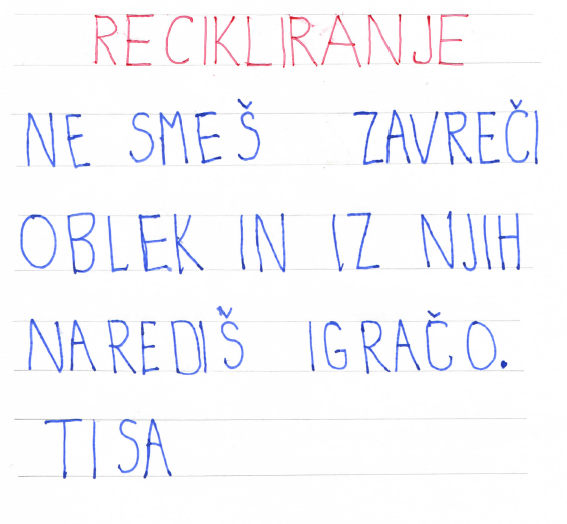 RECIKLIRANJE
NE SMEŠ ZAVREČI
OBLEK IN IZ NJIH
NAREDIŠ IGRAČO.
TISA